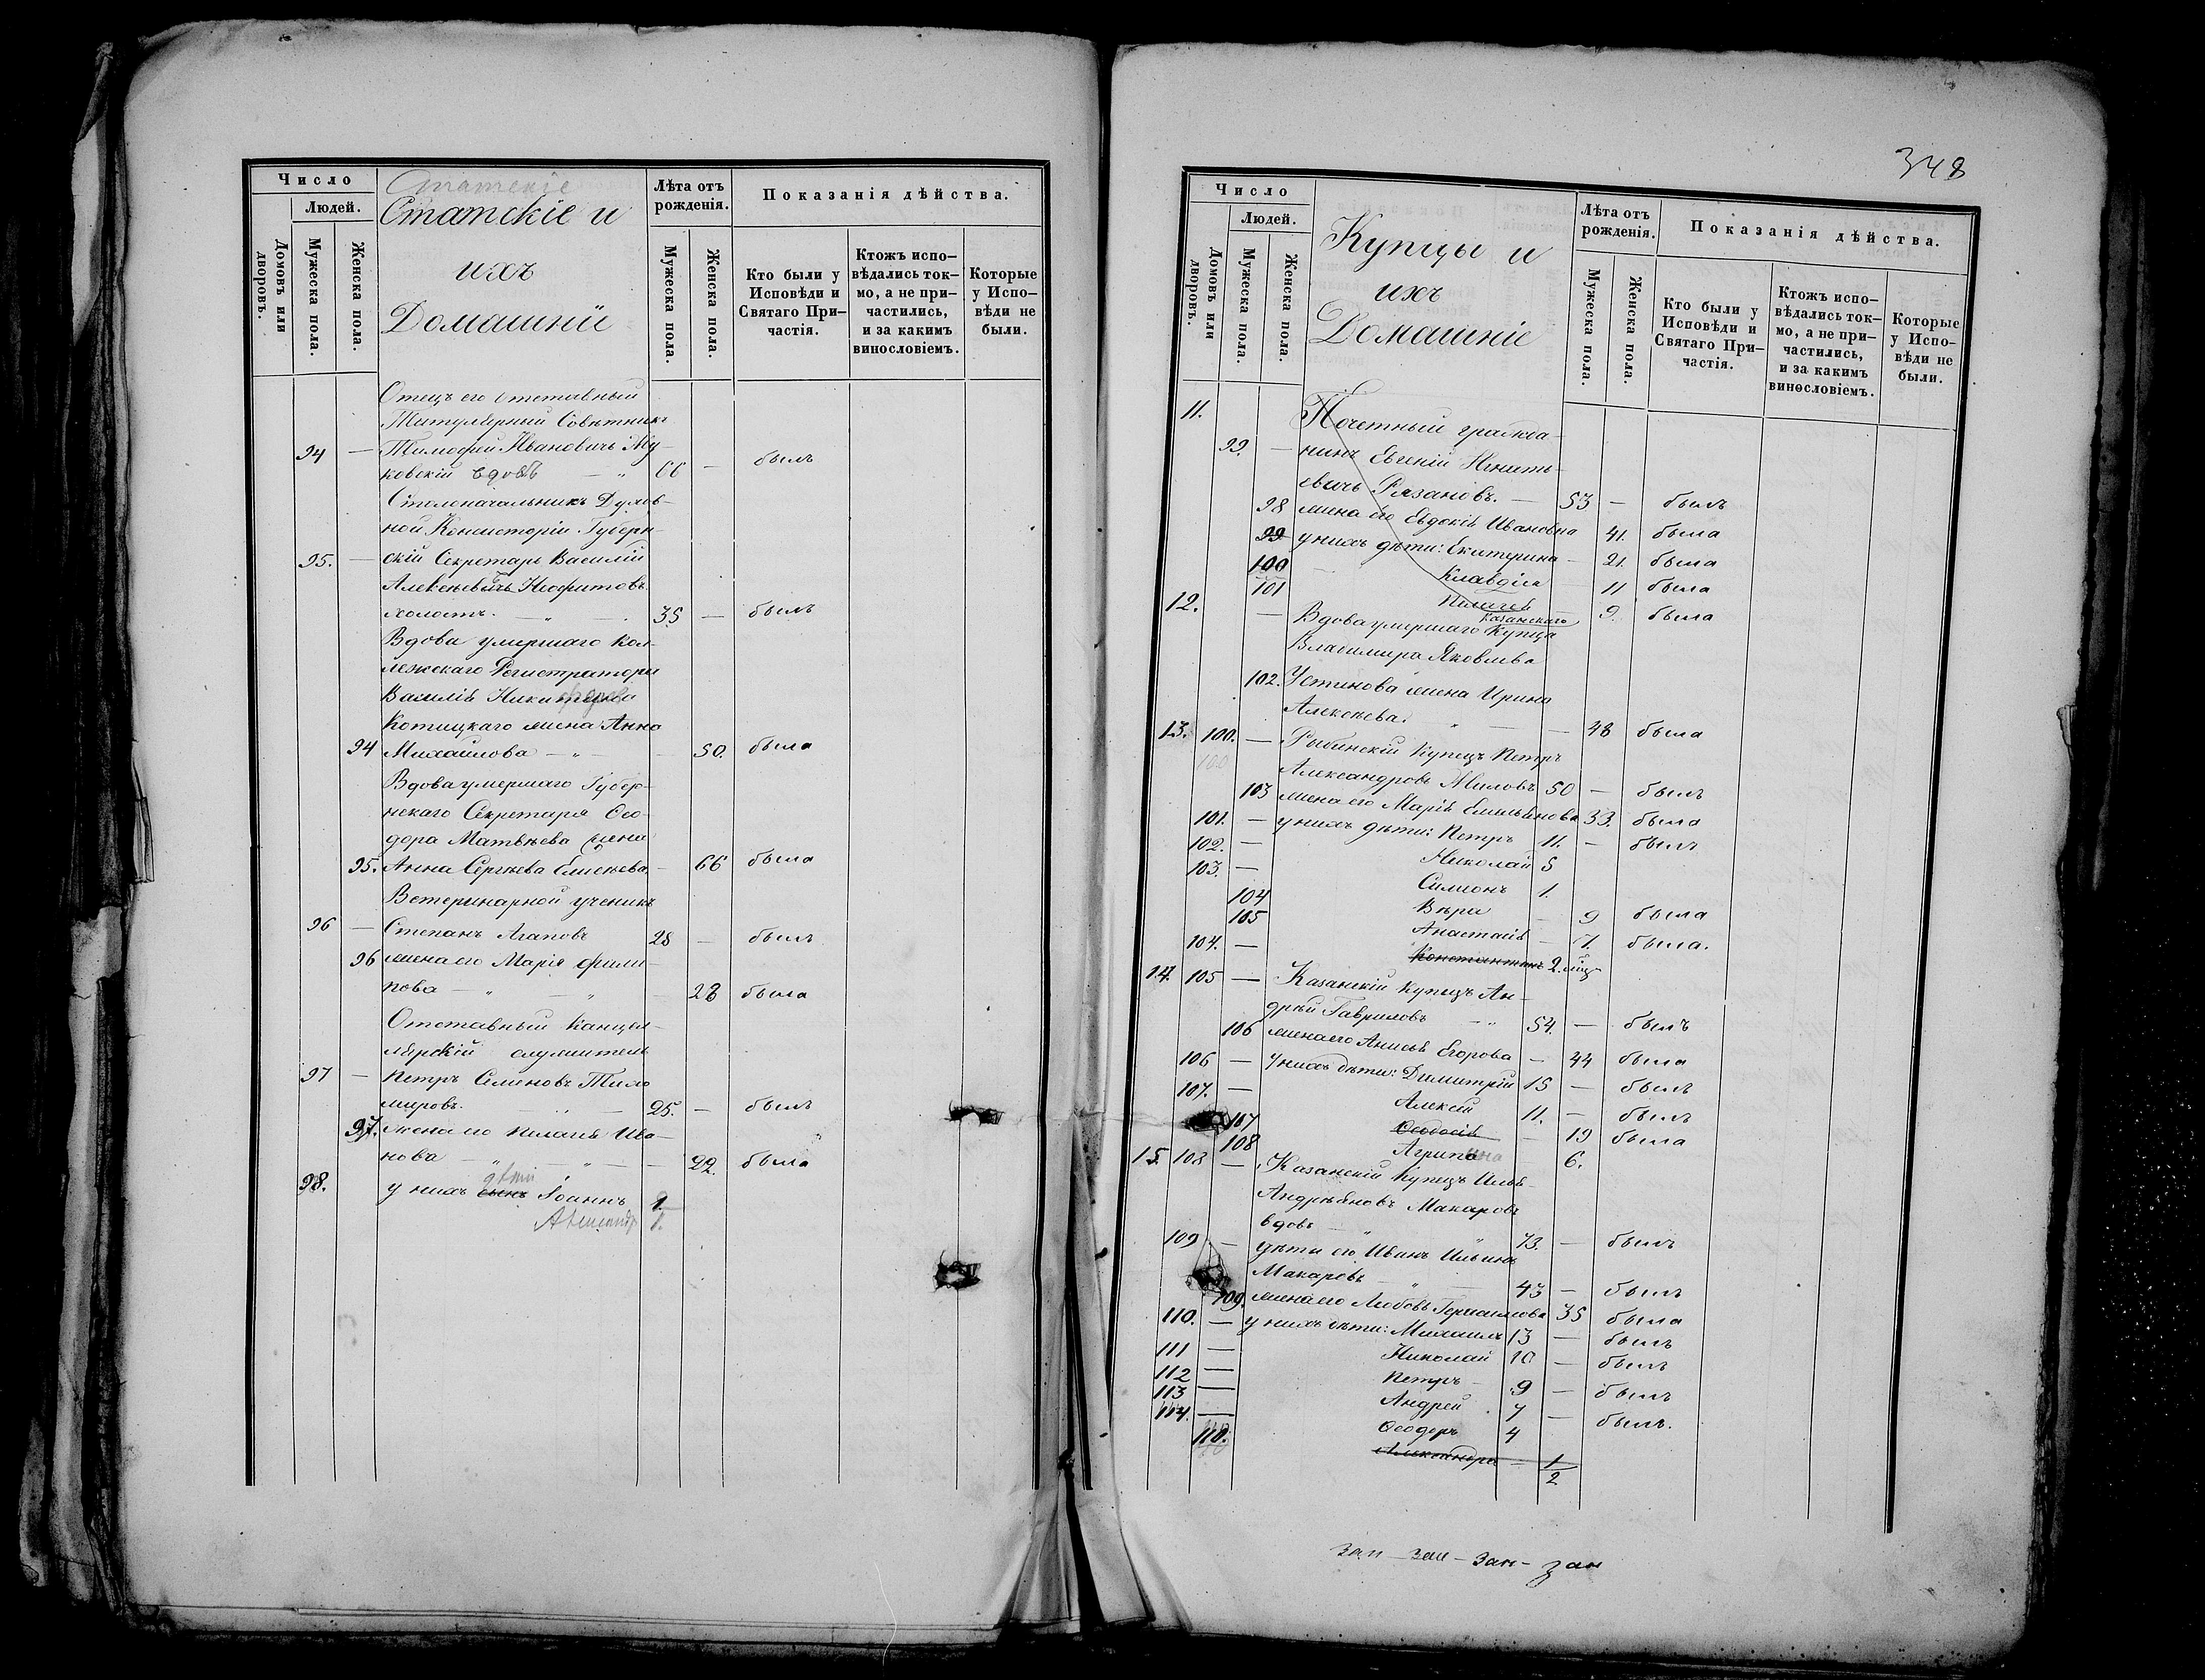 Число
Людей.
Домовъ или дворовъ.
Мужеска пола.
Женска пола.
Статскіе
Статскіе и
ихъ
Домашніи
Лѣта отъ
рожденія.
Мужеска пола.
Женска пола.
Показанія дѣйства.
Кто были у
Исповѣди и
Святаго При-
частія.
Ктожъ испо-
вѣдались ток-
мо, а не при-
частились,
и за какимъ
винословіемъ.
Которые
у Испо-
вѣди не
были.
Отецъ его отставный
Титулярный Совѣтникъ
94 — Тимофей Ивановичъ
ковскій вдовъ — " 66 — былъ
Столоначальникъ Духов-
ной Консисторіи Губерн-
95. — скій Секретарь Василій
Алексѣевичъ Неофитовъ
холостъ. — " — . 35 — былъ
Вдова умершаго Кол-
лежскаго Регистратора
Василія Никифорова
Котицкаго жена Анна
94 Михайлова — " — 50. была
Вдова умершаго Губер-
нскаго Секретаря Ѳео-
дора Матвѣева жена
95. Анна Сергѣева Елисѣева — 66 была
Ветеринарной ученикъ
96 — Степанъ Агаповъ 28 — былъ
96 жена его Марія Фили-
пова — " — " — 28 была
Отставный канцел-
лярскій служитель
97 — Петръ Семеновъ Тихо
мировъ. — " — 25. — былъ
97. жена его Пелагея Ива-
нова — " — " — 22. была
дѣти
98. у нихъ сынъ Іоаннъ 1.
Александр 1.
348
Число
Людей.
Домовъ или дворовъ.
Мужеска пола.
Женска пола.
Купцы и
ихъ
Домашніе
Лѣта отъ
рожденія.
Мужеска пола.
Женска пола.
Показанія дѣйства.
Кто были у
Исповѣди и
Святаго При-
частія.
Ктожъ испо-
вѣдались ток-
мо, а не при-
частились,
и за какимъ
винословіемъ.
Которые
у Испо-
вѣди не
были.
11. Почетный гражда-
99. — нинъ Евгеній Никит-
евичъ Рязановъ. — 53 — былъ
98 жена его Евдокія Ивановна 41. была
99 у нихъ дѣти: Екатерина — 21. была
100 Клавдія — 11 была
101 Пелагея — 9. была
Казанскаго
12. — Вдова умершаго Купца
Владимира Яковлева
102. Устинова жена Ирина
Алексѣева. " — — 48 была
13. 100. — Рыбинскій Купецъ Петръ
100 Александровъ Миловъ 50 — былъ
103 жена его Марія Емильянова 33. была
101. — у нихъ дѣти: Петръ 11. — былъ
102. — Николай 5
103. — Симеонъ 1.
104 Вѣра — 9 была
105 Анастасія — 7. была.
104. — Константинъ 2. мѣс
14. 105 — Казанскій Купецъ Ан-
дрей Гавриловъ — " 54. — былъ
106 жена его Анисья Егорова — 44 была
106 — у нихъ дѣти: Димитрій 15 — былъ
107. — Алексѣй 11. — былъ
107 Ѳеодосія — 19 была
108 Агрипина 6.
15. 108 — Казанскій Купецъ Илья
Андрѣяновъ Макаровъ
вдовъ — " 73. — былъ
109 — дѣти его Иванъ Ильинъ
Макаровъ — " — 43 — былъ
109. жена его Любовь Герасимова 35 была
110. — у нихъ дѣти: Михаилъ 13 — былъ
111 — Николай 10 — былъ
112 — Петръ — 9 — былъ
113 — Андрей . 7 — былъ.
114. — Ѳеодоръ 4
110. Александра — 1/2
зап — зап — зап — зап